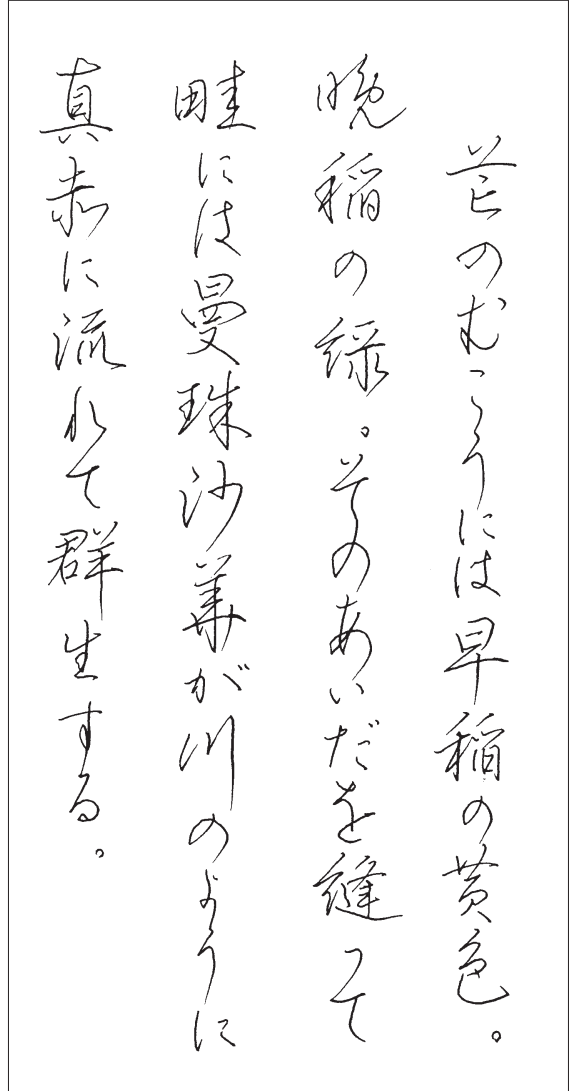 芒のむこうには早稲の黄色。
晩稲の緑。そのあいだを縫って
畦には曼珠沙華が川のように
真赤に流れて群生する。